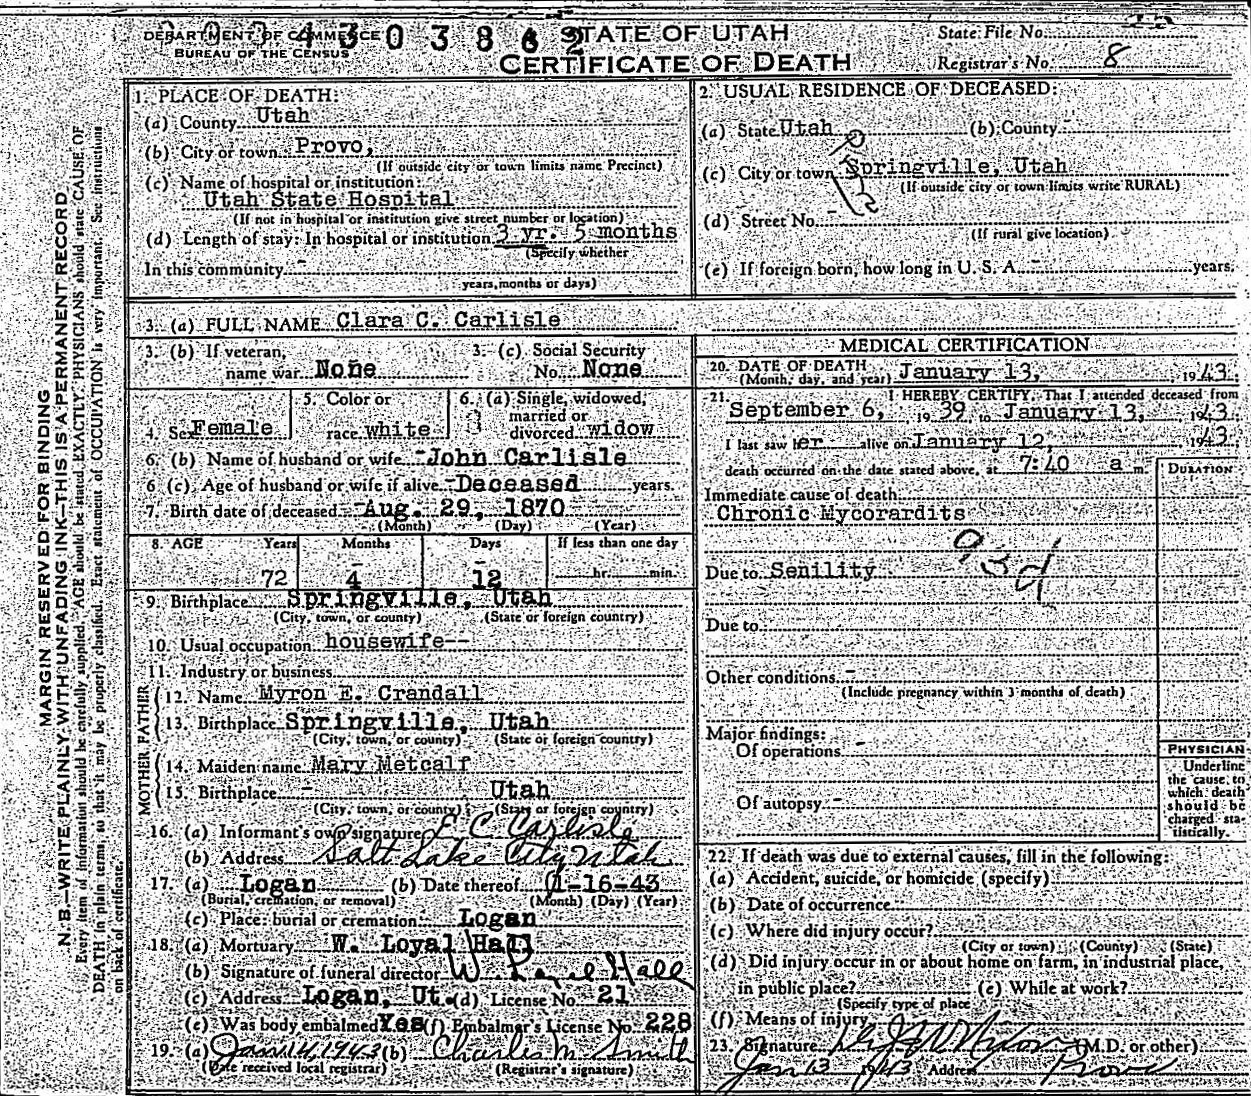 DEPARTMENT OF COMMERCE
BUREAU OF THE CENSUS
STATE OF UTAH
CERTIFICATE OF DEATH
State File No.
Registrar's No. 8
MARGIN RESERVED FOR BINDING
N. B.—WRITE PLAINLY, WITH UNFADING INK—THIS IS A PERMANENT RECORD
Every item of information should be carefully supplied. AGE should be stated EXACTLY. PHYSICIANS should state CAUSE OF
DEATH in plain terms, so that it may be properly classified. Exact statement of OCCUPATION is very important. See instructions
on back of certificate.
1. PLACE OF DEATH:
(a) County Utah
(b) City or town Provo,
(If outside city or town limits name Precinct)
(c) Name of hospital or institution:
Utah State Hospital
(If not in hospital or institution give street number or location)
(d) Length of stay: In hospital or institution 3 yr. 5 months
(Specify whether
In this community -
years, months or days)
2. USUAL RESIDENCE OF DECEASED:
(a) State Utah (b) County -
(c) City or town Springville, Utah
(If outside city or town limits write RURAL)
(d) Street No. -
(If rural give location)
(e) If foreign born, how long in U. S. A. - years.
3. (a) FULL NAME Clara C. Carlisle
3. (b) If veteran, name war None
3. (c) Social Security No. None
4. Sex Female
5. Color or race white
6. (a) Single, widowed, married or divorced widow
6. (b) Name of husband or wife -John Carlisle
6 (c). Age of husband or wife if alive -Deceased years.
7. Birth date of deceased -Aug. 29, 1870
(Month) (Day) (Year)
8. AGE Years Months Days If less than one day
72 4 12 hr. min.
9. Birthplace Springville, Utah
(City, town, or county) (State or foreign country)
10. Usual occupation housewife--
11. Industry or business
FATHER
12. Name Myron E. Crandall
13. Birthplace Springville, Utah
(City, town, or county) (State or foreign country)
MOTHER
14. Maiden name Mary Metcalf
15. Birthplace - Utah
(City, town, or county) (State or foreign country)
16. (a) Informant's own signature E C Carlisle
(b) Address Salt Lake City Utah
17. (a) Logan (b) Date thereof 1-16-43
(Burial, cremation, or removal) (Month) (Day) (Year)
(c) Place: burial or cremation Logan
18. (a) Mortuary W. Loyal Hall
(b) Signature of funeral director W Loyal Hall
(c) Address Logan, Ut. (d) License No. 21
(e) Was body embalmed Yes (f) Embalmer's License No. 228
19. (a) Jan 14, 1943 (b) Charles M Smith
(Date received local registrar) (Registrar's signature)
MEDICAL CERTIFICATION
20. DATE OF DEATH
(Month, day, and year) January 13, 1943.
21. I HEREBY CERTIFY, That I attended deceased from
September 6, 1939 to January 13, 1943
I last saw her alive on January 12 1943
death occurred on the date stated above, at 7:40 a m.
DURATION
Immediate cause of death
Chronic Mycorardits
93d
Due to Senility
Due to
Other conditions -
(Include pregnancy within 3 months of death)
Major findings:
Of operations -
Of autopsy -
PHYSICIAN
Underline
the cause to
which death
should be
charged sta-
tistically.
22. If death was due to external causes, fill in the following:
(a) Accident, suicide, or homicide (specify)
(b) Date of occurrence
(c) Where did injury occur?
(City or town) (County) (State)
(d) Did injury occur in or about home on farm, in industrial place,
in public place? (e) While at work?
(Specify type of place
(f) Means of injury
23. Signature (M.D. or other)
Jan 13 1943 Address Provo